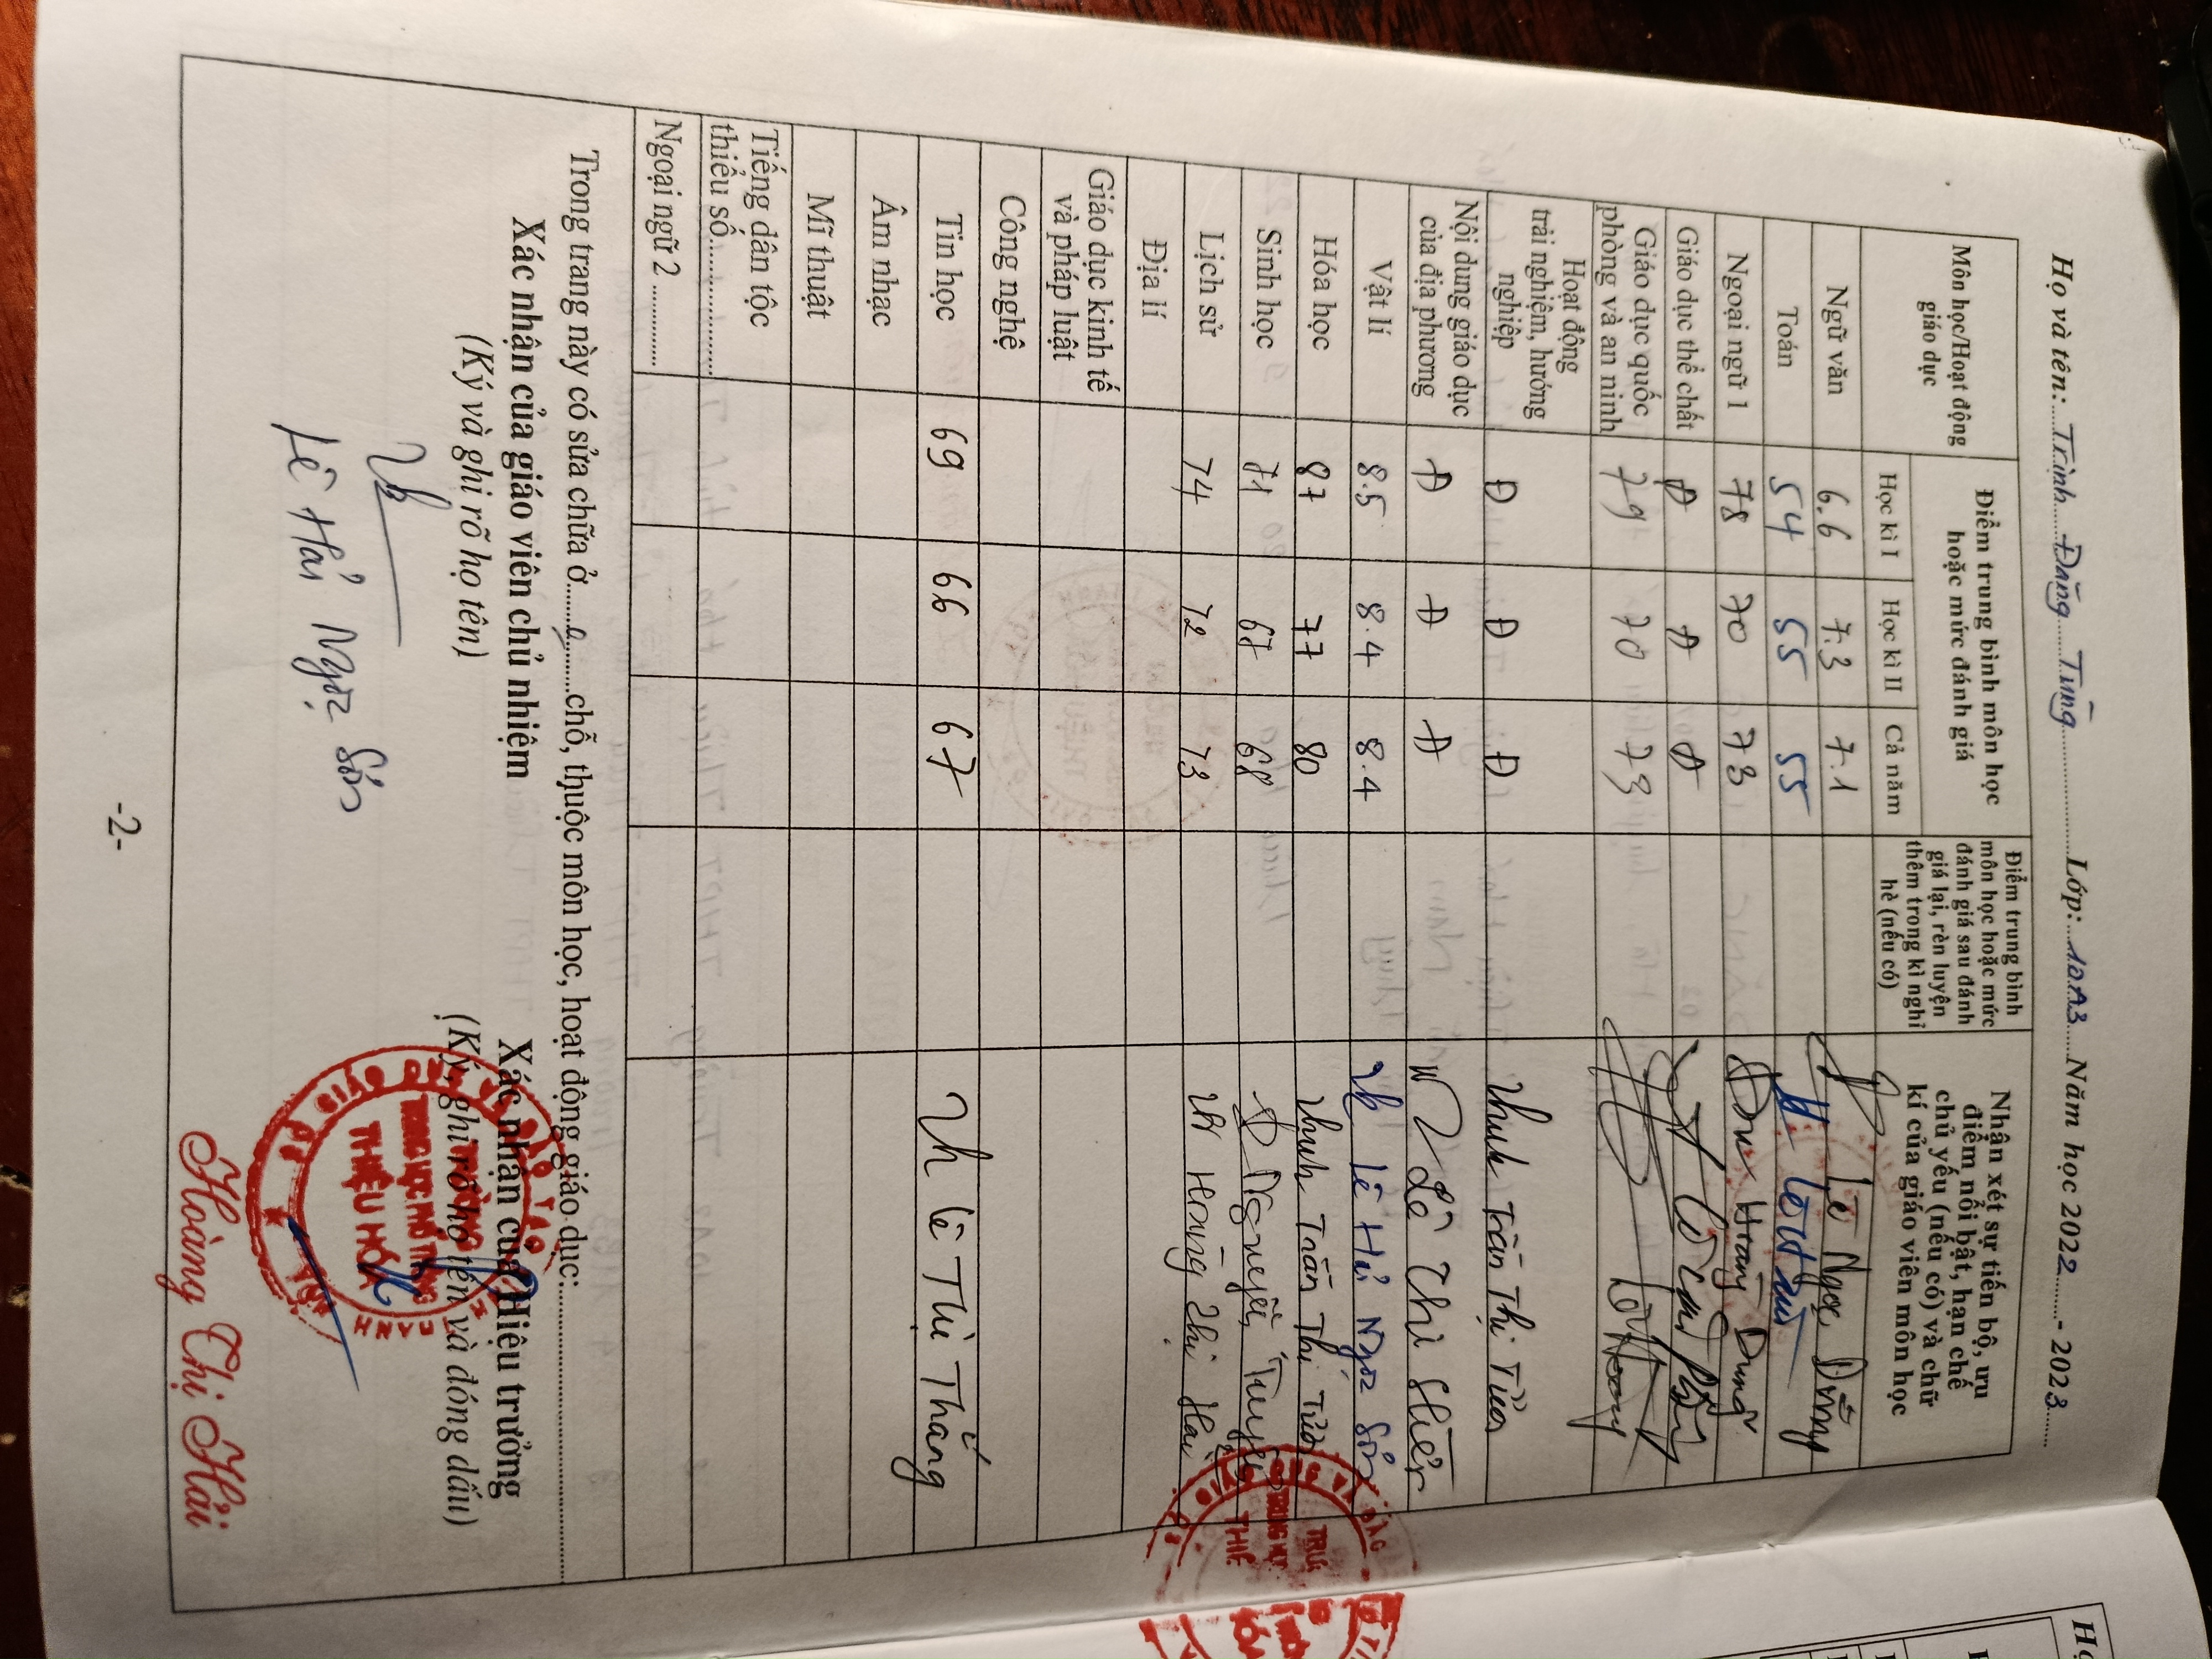 Họ và tên: Trịnh Đăng Tùng Lớp: 10A3 Năm học 2022 - 2023
Môn học/Hoạt động giáo dục
Điểm trung bình môn học hoặc mức đánh giá
Học kì I Học kì II Cả năm
Điểm trung bình môn học hoặc mức đánh giá sau đánh giá lại, rèn luyện thêm trong kì nghỉ hè (nếu có)
Nhận xét sự tiến bộ, ưu điểm nổi bật, hạn chế chủ yếu (nếu có) và chữ kí của giáo viên môn học
Ngữ văn 6.6 7.3 7.1 Lê Ngọc
Toán 54 55 55
Ngoại ngữ 1 78 70 73 Hoàng Dung
Giáo dục thể chất Đ Đ Đ
Giáo dục quốc phòng và an ninh 79 70 73
Hoạt động trải nghiệm, hướng nghiệp Đ Đ Đ Trần Thị
Nội dung giáo dục của địa phương Đ Đ Đ Thị
Vật lí 8.5 8.4 8.4 Lê Hải Ngọc Sơn
Hóa học 87 77 80 Trần Thị
Sinh học 71 67 68 Nguyễn
Lịch sử 74 72 73 Hoàng Thị
Địa lí
Giáo dục kinh tế và pháp luật
Công nghệ
Tin học 69 66 67 Lê Thị Thắng
Âm nhạc
Mĩ thuật
Tiếng dân tộc thiểu số
Ngoại ngữ 2
Trong trang này có sửa chữa ở 0 chỗ, thuộc môn học, hoạt động giáo dục:
Xác nhận của giáo viên chủ nhiệm
(Ký và ghi rõ họ tên)
Lê Hải Ngọc Sơn
Xác nhận của Hiệu trưởng
(Ký, ghi rõ họ tên và đóng dấu)
TRƯỜNG
TRUNG HỌC PHỔ THÔNG
THIỆU HÓA
Hoàng Thị Hải
-2-